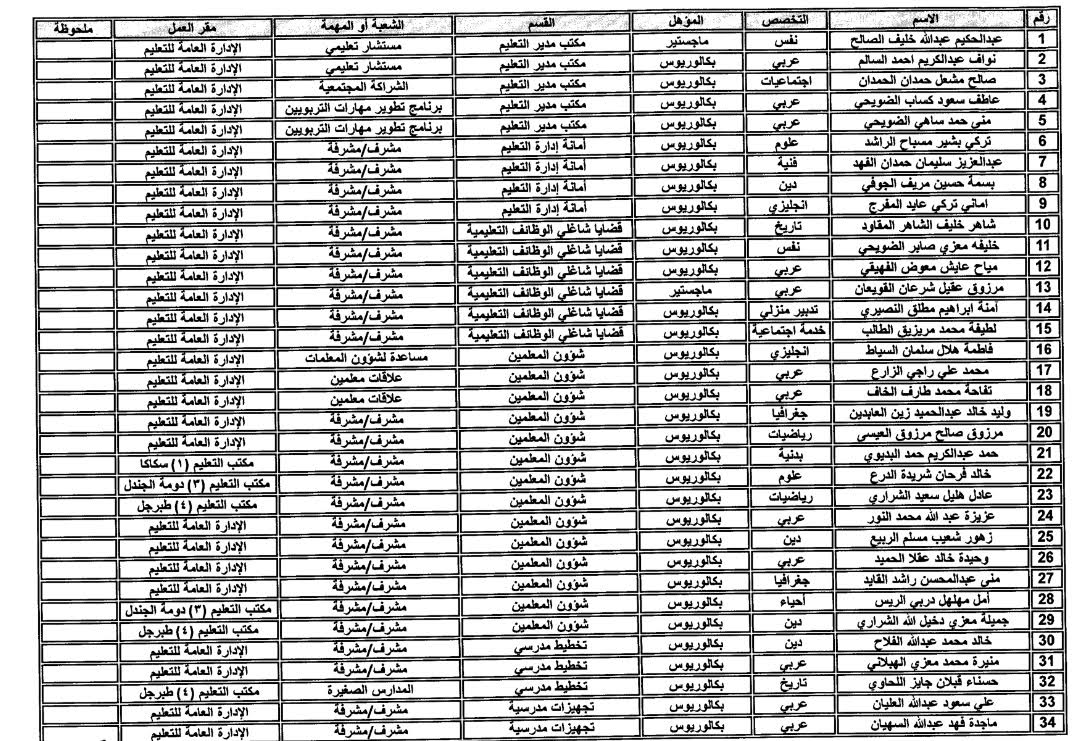 رقم الاسم التخصص المؤهل القسم الشعبة أو المهمة مقر العمل ملحوظة
1 عبدالحكيم عبدالله خليف الصالح نفس ماجستير مكتب مدير التعليم مستشار تعليمي الإدارة العامة للتعليم
2 نواف عبدالكريم احمد السالم عربي بكالوريوس مكتب مدير التعليم مستشار تعليمي الإدارة العامة للتعليم
3 صالح مشعل حمدان الحمدان اجتماعيات بكالوريوس مكتب مدير التعليم الشراكة المجتمعية الإدارة العامة للتعليم
4 عاطف سعود كساب الضويحي عربي بكالوريوس مكتب مدير التعليم برنامج تطوير مهارات التربويين الإدارة العامة للتعليم
5 منى حمد ساهي الضويحي عربي بكالوريوس مكتب مدير التعليم برنامج تطوير مهارات التربويين الإدارة العامة للتعليم
6 تركي بشير مسباح الراشد علوم بكالوريوس أمانة إدارة التعليم مشرف/مشرفة الإدارة العامة للتعليم
7 عبدالعزيز سليمان حمدان الفهد فنية بكالوريوس أمانة إدارة التعليم مشرف/مشرفة الإدارة العامة للتعليم
8 بسمة حسين مريف الجوفي دين بكالوريوس أمانة إدارة التعليم مشرف/مشرفة الإدارة العامة للتعليم
9 اماني تركي عايد المفرج انجليزي بكالوريوس أمانة إدارة التعليم مشرف/مشرفة الإدارة العامة للتعليم
10 شاهر خليف الشاهر المقاود تاريخ بكالوريوس قضايا شاغلي الوظائف التعليمية مشرف/مشرفة الإدارة العامة للتعليم
11 خليفه معزي صابر الضويحي نفس بكالوريوس قضايا شاغلي الوظائف التعليمية مشرف/مشرفة الإدارة العامة للتعليم
12 مياح عايش معوض الفهيقي عربي بكالوريوس قضايا شاغلي الوظائف التعليمية مشرف/مشرفة الإدارة العامة للتعليم
13 مرزوق عقيل شرعان القويعان عربي ماجستير قضايا شاغلي الوظائف التعليمية مشرف/مشرفة الإدارة العامة للتعليم
14 آمنة ابراهيم مطلق النصيري تدبير منزلي بكالوريوس قضايا شاغلي الوظائف التعليمية مشرف/مشرفة الإدارة العامة للتعليم
15 لطيفة محمد مريزيق الطالب خدمة اجتماعية بكالوريوس قضايا شاغلي الوظائف التعليمية مشرف/مشرفة الإدارة العامة للتعليم
16 فاطمة هلال سلمان السياط انجليزي بكالوريوس شؤون المعلمين مساعدة لشؤون المعلمات الإدارة العامة للتعليم
17 محمد علي راجي الزارع عربي بكالوريوس شؤون المعلمين علاقات معلمين الإدارة العامة للتعليم
18 تفاحة محمد طارف الخاف عربي بكالوريوس شؤون المعلمين علاقات معلمين الإدارة العامة للتعليم
19 وليد خالد عبدالحميد زين العابدين جغرافيا بكالوريوس شؤون المعلمين مشرف/مشرفة الإدارة العامة للتعليم
20 مرزوق صالح مرزوق العيسي رياضيات بكالوريوس شؤون المعلمين مشرف/مشرفة الإدارة العامة للتعليم
21 حمد عبدالكريم حمد البديوي بدنية بكالوريوس شؤون المعلمين مشرف/مشرفة مكتب التعليم (١) سكاكا
22 خالد فرحان شريدة الدرع علوم بكالوريوس شؤون المعلمين مشرف/مشرفة مكتب التعليم (٣) دومة الجندل
23 عادل هليل سعيد الشراري رياضيات بكالوريوس شؤون المعلمين مشرف/مشرفة مكتب التعليم (٤) طبرجل
24 عزيزة عبد الله محمد النور عربي بكالوريوس شؤون المعلمين مشرف/مشرفة الإدارة العامة للتعليم
25 زهور شعيب مسلم الربيع دين بكالوريوس شؤون المعلمين مشرف/مشرفة الإدارة العامة للتعليم
26 وحيدة خالد عقلا الحميد عربي بكالوريوس شؤون المعلمين مشرف/مشرفة الإدارة العامة للتعليم
27 منى عبدالمحسن راشد القايد جغرافيا بكالوريوس شؤون المعلمين مشرف/مشرفة الإدارة العامة للتعليم
28 أمل مهلهل دربي الريس أحياء بكالوريوس شؤون المعلمين مشرف/مشرفة مكتب التعليم (٣) دومة الجندل
29 جميلة معزي دخيل الله الشراري دين بكالوريوس شؤون المعلمين مشرف/مشرفة مكتب التعليم (٤) طبرجل
30 خالد محمد عبدالله الفلاح دين بكالوريوس تخطيط مدرسي مشرف/مشرفة الإدارة العامة للتعليم
31 منيرة محمد معزي الهبلاني عربي بكالوريوس تخطيط مدرسي مشرف/مشرفة الإدارة العامة للتعليم
32 حسناء قبلان جايز اللحاوي تاريخ بكالوريوس تخطيط مدرسي المدارس الصغيرة مكتب التعليم (٤) طبرجل
33 علي سعود عبدالله العليان عربي بكالوريوس تجهيزات مدرسية مشرف/مشرفة الإدارة العامة للتعليم
34 ماجدة فهد عبدالله السهيان عربي بكالوريوس تجهيزات مدرسية مشرف/مشرفة الإدارة العامة للتعليم